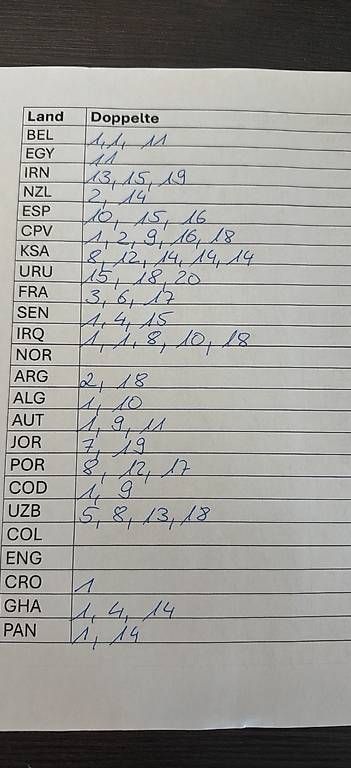 Land Doppelte
BEL 1, 1, 11
EGY 11
IRN 13, 15, 19
NZL 2, 14
ESP 10, 15, 16
CPV 1, 2, 9, 16, 18
KSA 8, 12, 14, 14, 14
URU 15, 18, 20
FRA 3, 6, 17
SEN 1, 4, 15
IRQ 1, 1, 8, 10, 18
NOR
ARG 2, 18
ALG 1, 10
AUT 1, 9, 11
JOR 7, 19
POR 8, 12, 17
COD 1, 9
UZB 5, 8, 13, 18
COL
ENG
CRO 1
GHA 1, 4, 14
PAN 1, 14